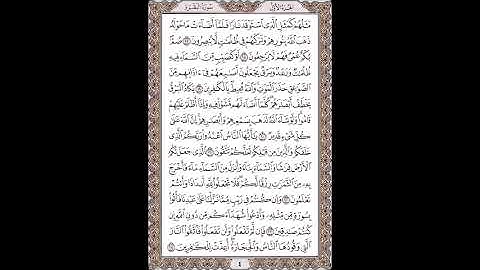 الجزء الأول سورة البقرة
مثلهم كمثل الذي استوقد نارا فلما أضاءت ما حوله
ذهب الله بنورهم وتركهم في ظلمت لا يبصرون ١٧ صم
بكم عمي فهم لا يرجعون ١٨ أو كصيب من السماء فيه
ظلمت ورعد وبرق يجعلون أصبعهم في ءاذانهم من
الصوعق حذر الموت والله محيط بالكفرين ١٩ يكاد البرق
يخطف أبصرهم كلما أضاء لهم مشوا فيه وإذا أظلم عليهم
قاموا ولو شاء الله لذهب بسمعهم وأبصرهم إن الله على
كل شيء قدير ٢٠ يأيها الناس اعبدوا ربكم الذي
خلقكم والذين من قبلكم لعلكم تتقون ٢١ الذي جعل لكم
الأرض فرشا والسماء بناء وأنزل من السماء ماء فأخرج
به من الثمرت رزقا لكم فلا تجعلوا لله أندادا وأنتم
تعلمون ٢٢ وإن كنتم في ريب مما نزلنا على عبدنا فأتوا
بسورة من مثله وادعوا شهداءكم من دون الله إن
كنتم صدقين ٢٣ فإن لم تفعلوا ولن تفعلوا فاتقوا النار
التي وقودها الناس والحجارة أعدت للكفرين ٢٤
4